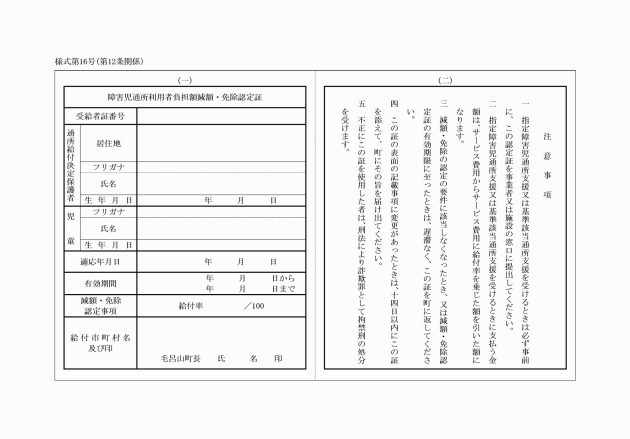 様式第16号(第12条関係)
(一)
障害児通所利用者負担額減額・免除認定証
受給者証番号
通所給付決定保護者
居住地
フリガナ
氏名
生年月日
年　月　日
児童
フリガナ
氏名
生年月日
適応年月日
年　月　日
有効期間
年　月　日から
年　月　日まで
減額・免除
認定事項
給付率　／100
給付市町村名
及び印
毛呂山町長　氏　名　印
(二)
注意事項
一　指定障害児通所支援又は基準該当通所支援を受けるときは必ず事前
に、この認定証を事業者又は施設の窓口に提出してください。
二　指定障害児通所支援又は基準該当通所支援を受けるときに支払う金
額は、サービス費用からサービス費用に給付率を乗じた額を引いた額に
なります。
三　減額・免除の認定の要件に該当しなくなったとき、又は減額・免除認
定証の有効期限に至ったときは、遅滞なく、この証を町に返してくださ
い。
四　この証の表面の記載事項に変更があったときは、十四日以内にこの証
を添えて、町にその旨を届け出てください。
五　不正にこの証を使用した者は、刑法により詐欺罪として拘禁刑の処分
を受けます。